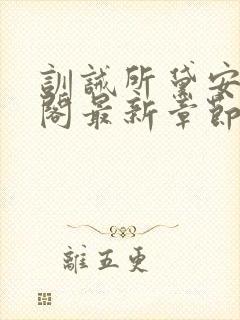 訓誡所黛安
閣最新章節
離五更